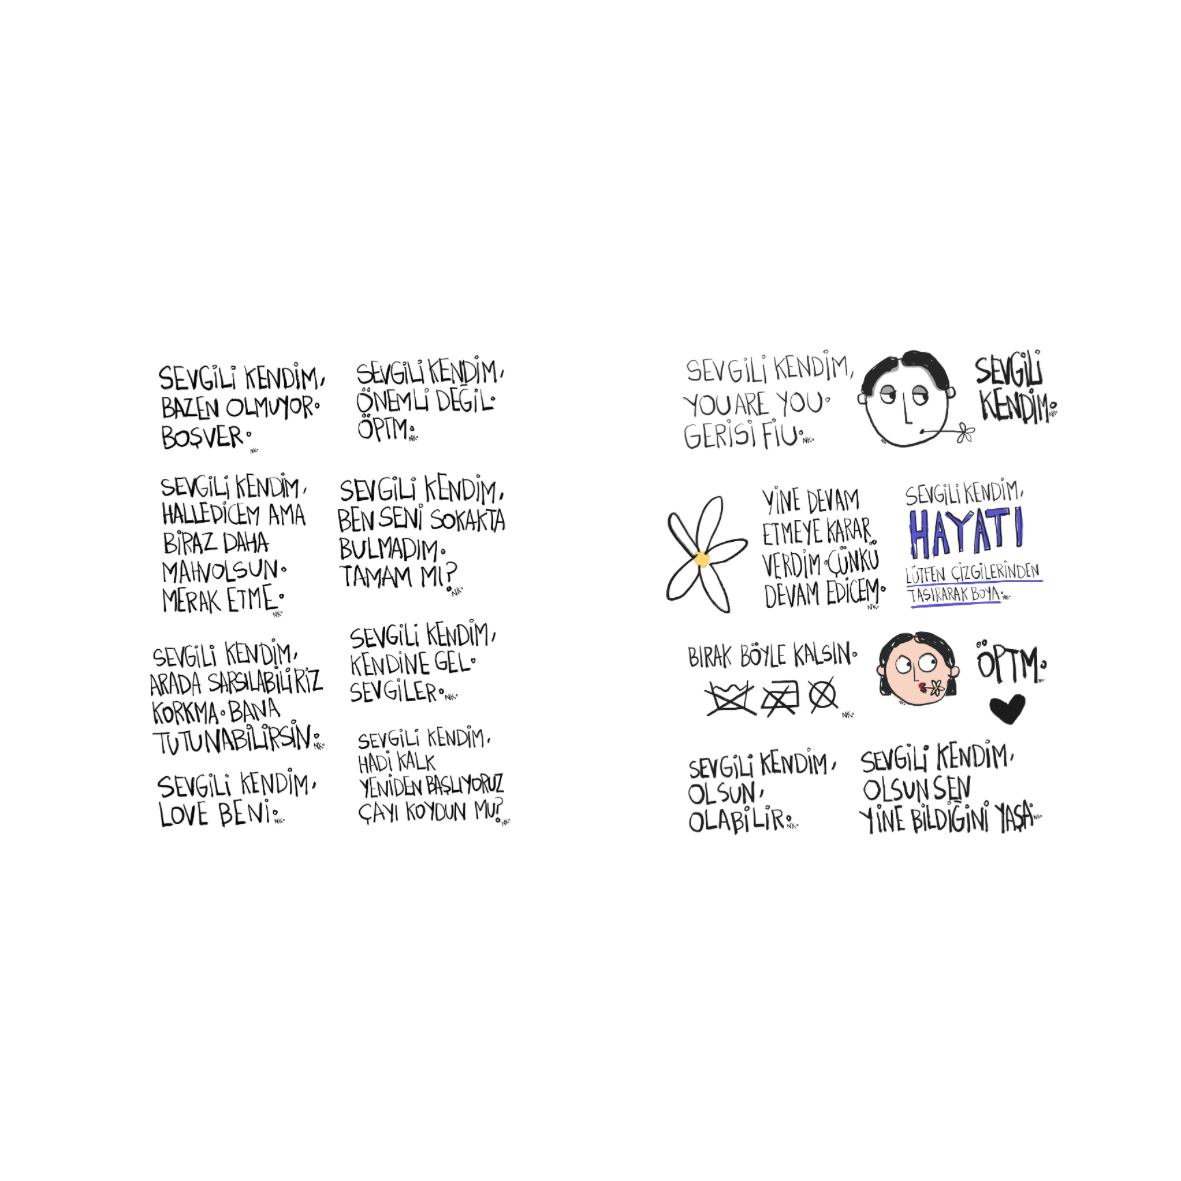 SEVGİLİ KENDİM,
BAZEN OLMUYOR.
BOŞVER.
NK.
SEVGİLİ KENDİM,
ÖNEMLİ DEĞİL.
ÖPTM.
NK.
SEVGİLİ KENDİM,
HALLEDİCEM AMA
BİRAZ DAHA
MAHVOLSUN.
MERAK ETME.
NK.
SEVGİLİ KENDİM,
BEN SENİ SOKAKTA
BULMADIM.
TAMAM MI?
NK.
SEVGİLİ KENDİM,
ARADA SARSILABİLİRİZ
KORKMA. BANA
TUTUNABİLİRSİN.
NK.
SEVGİLİ KENDİM,
KENDİNE GEL.
SEVGİLER.
NK.
SEVGİLİ KENDİM,
LOVE BENİ.
NK.
SEVGİLİ KENDİM,
HADİ KALK
YENİDEN BAŞLIYORUZ
ÇAYI KOYDUN MU?
NK.
SEVGİLİ KENDİM,
YOU ARE YOU.
GERİSİ FİU.
NK.
SEVGİLİ
KENDİM.
NK.
YİNE DEVAM
ETMEYE KARAR
VERDİM. ÇÜNKÜ
DEVAM EDİCEM.
NK.
SEVGİLİ KENDİM,
HAYATI
LÜTFEN ÇİZGİLERİNDEN
TAŞIRARAK BOYA.
NK.
BIRAK BÖYLE KALSIN.
NK.
ÖPTM.
NK.
SEVGİLİ KENDİM,
OLSUN,
OLABİLİR.
NK.
SEVGİLİ KENDİM,
OLSUN SEN
YİNE BİLDİĞİNİ YAŞA.
NK.